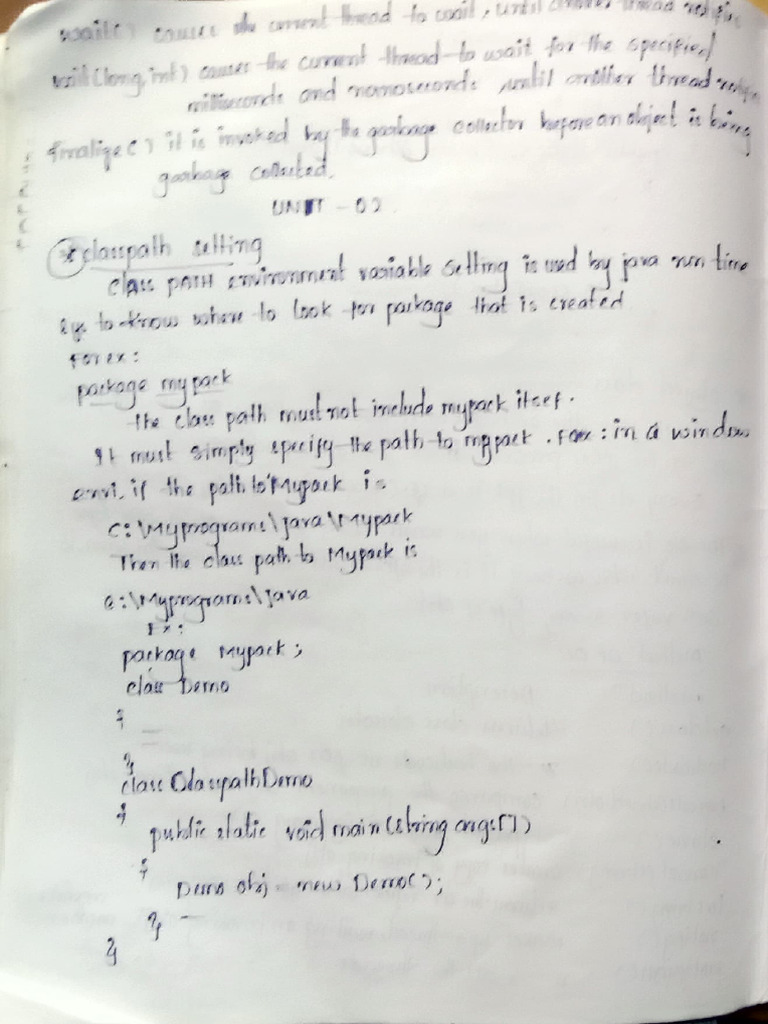 wait() causes the current thread to wait, until another thread notifies
wait(long,int) causes the current thread to wait for the specified
milliseconds and nanoseconds, until another thread notifies
finalize() it is invoked by the garbage collector before an object is being
garbage collected.
UNIT - 02
* classpath setting
class PATH environment variable setting is used by java run time
sys to know where to look for package that is created
For ex:
package mypack
the class path must not include mypack itsef.
It must simply specify the path to mypack. For ex: in a window
envi. if the path to Mypack is
C:\Myprograms\java\Mypack
Then the class path to Mypack is
c:\Myprograms\java
Ex:
package Mypack;
class Demo
{
}
class ClasspathDemo
{
public static void main(string args[])
{
Demo obj = new Demo();
}
}